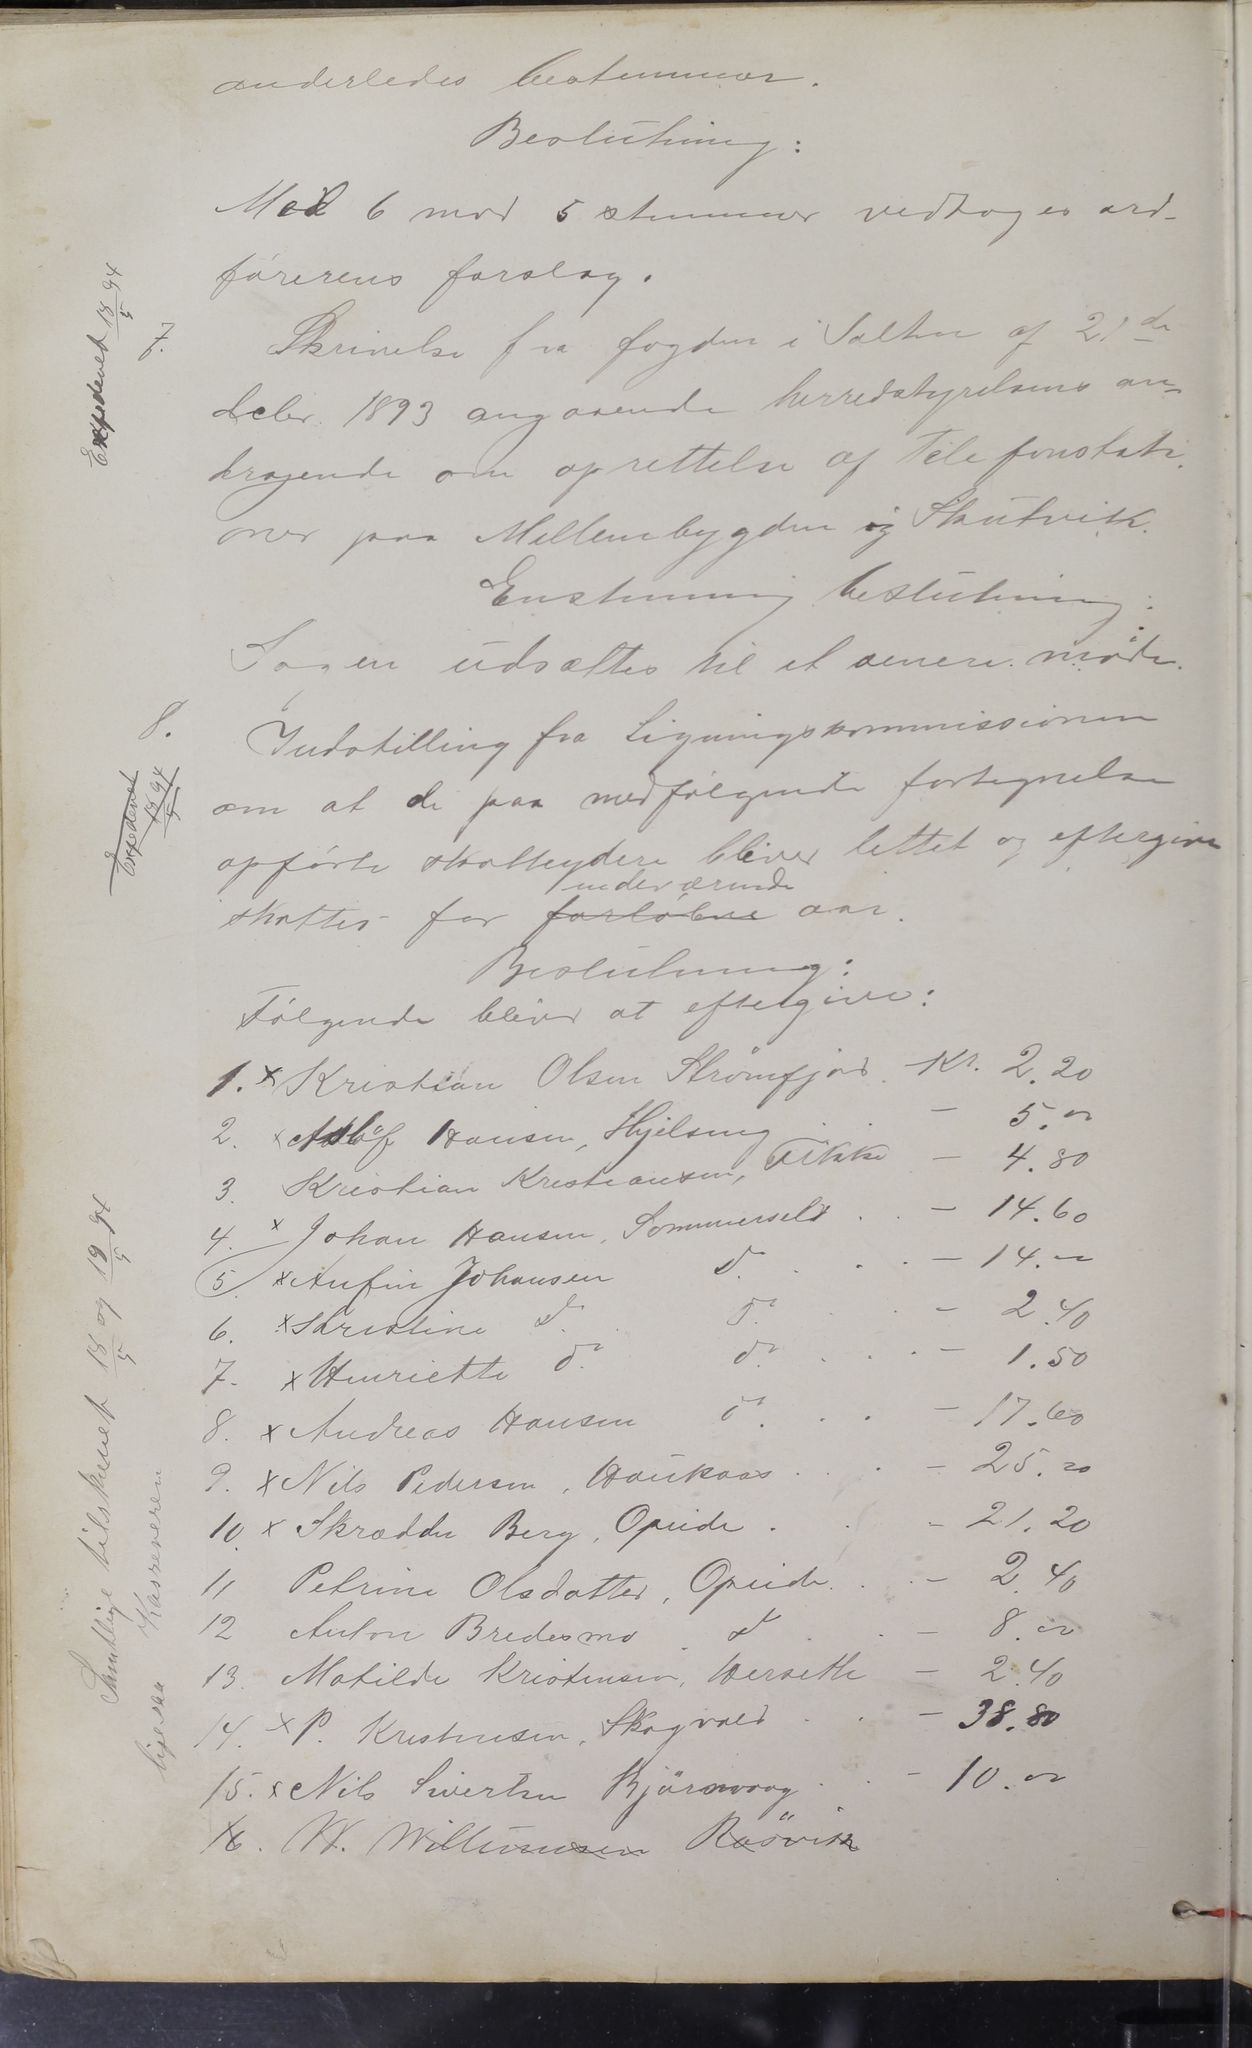 anderledes bestemmer.
Beslutning:
Med 6 mod 5 stemmer vedtoges ord-
førerens forslag.
Expederet 18/5 94
7.
Skrivelse fra fogden i Salten af 21de
decbr. 1893 angaaende herredstyrelsens an-
dragende om oprettelse af Telefonstati-
oner paa Mellembygden og Skutvik.
Enstemmig beslutning:
Sagen udsættes til et senere møde.
8.
Expederet 18/5 94
Indstilling fra Ligningskommissionen
om at de paa medfølgende fortegnelse
opførte skatteydere bliver lettet og eftergive
nuværende
skatter for forløbne aar.
Beslutning:
Følgende bliver at eftergive:
Samtlige tilskrevet 18 og 19/5 94
ligesaa Kassereren
1. x Kristian Olsen Strömfjord Kr. 2.20
2. x Adlöf Hansen, Hjelseng . . - 5.00
3. Kristian Kristiansen, Fikke - 4.80
4. x Johan Hansen, Sommerseld . . - 14.60
5. x Anfin Johansen do. . . . - 14.00
6. x Kristine do. do. . . - 2.40
7. x Henriette do. do. . . . - 1.50
8. x Andreas Hansen do. . . - 17.60
9. x Nils Pedersen, Haukaas . . . - 25.20
10. x Skrædder Berg, Opeide . . - 21.20
11 Petrine Olsdatter, Opeide . . - 2.40
12 Anton Bredesmo do . . - 8.00
13. Matilde Kristensen, Herseth - 2.40
14. x P. Kristensen, Skogvold . . - 38.80
15. x Nils Sivertsen Bjørnvaag . . - 10.00
16. W. Willumsen Rösvik